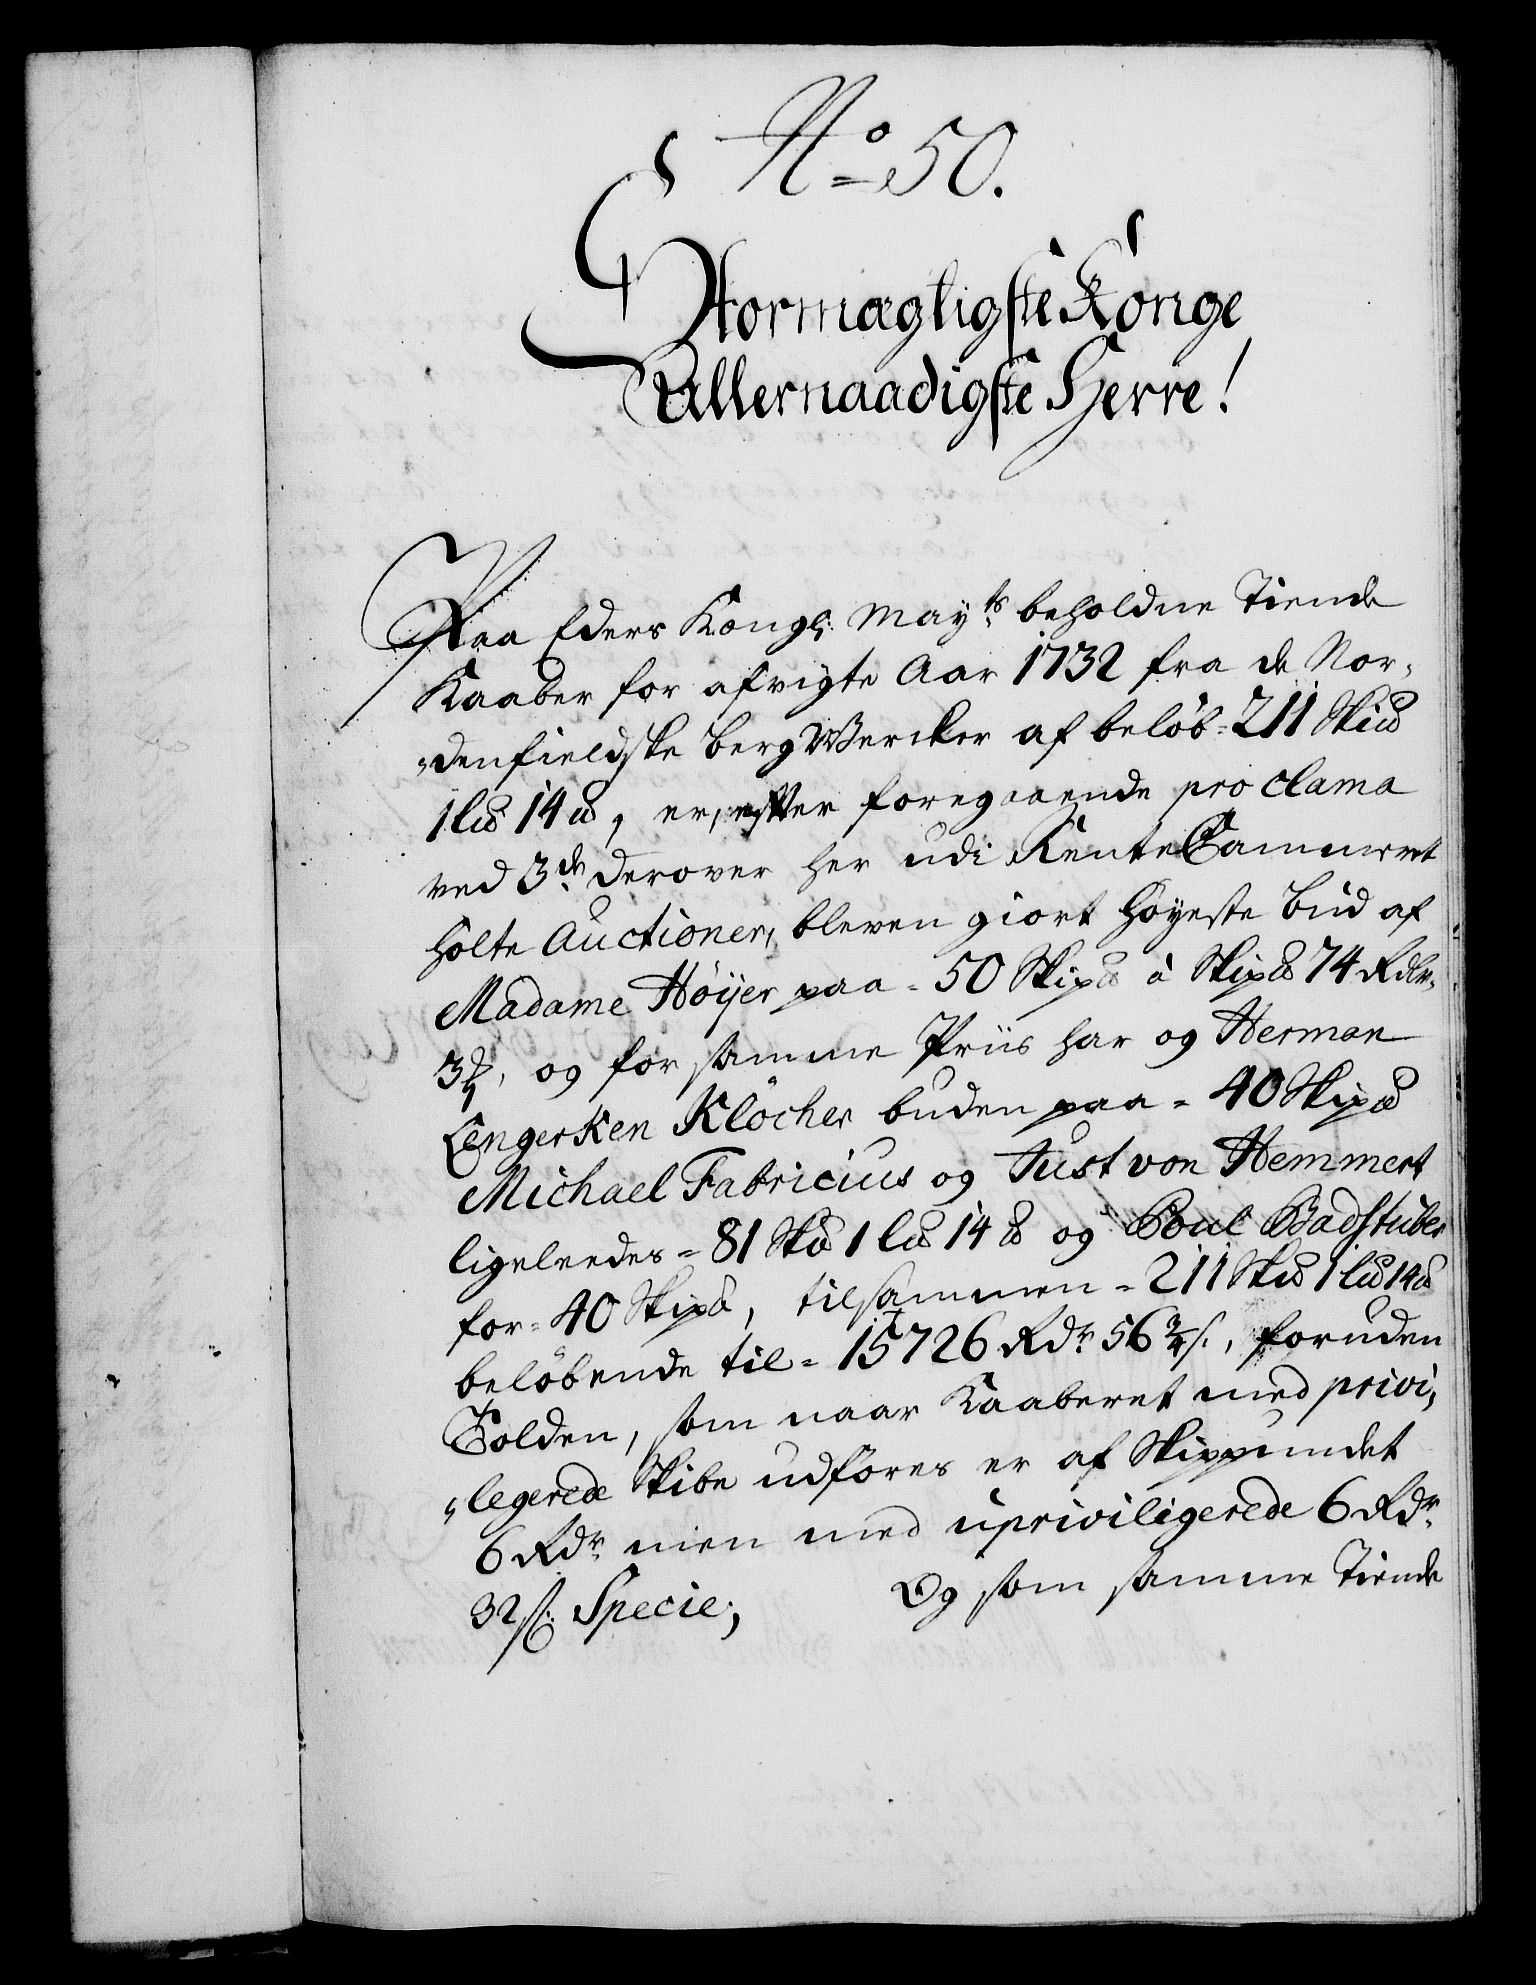 No 50.
Stormægtigste Konge
Allernaadigste Herre!
Paa Eders Kongl: Mayts beholdne Tiende
Kaaber for afvigte Aar 1732 fra de Nor„
„denfieldske bergWercker af beløb = 211 Sk℔
1 L℔ 14 ℔, er, efter foregaaende proclama
ved 3de derover her udi RenteCammeret
holte Auctioner, bleven giort høyeste bud af
Madame Höijer paa = 50 Skip℔ à Skip℔ 74 Rdlr.
3 ꝑ, og for samme Priis har og Herman
Lengerken Klöcher buden paa = 40 Skip℔
Michael Fabricius og Just von Hemmert
ligeleedes = 81 Sk℔ 1 L℔ 14 ℔ og Poul Badstuber
for = 40 Skip℔, tilsammen = 211 Sk℔ 1 L℔ 14 ℔
beløbende til = 15726 Rdr 56 3/4 s., foruden
Tolden, som naar Kaaberet med privi„
„legerede Skibe udføres er af Skippundet
6 Rdr men med upriviligerede 6 Rdr
32 s: Specie; Og som samme Tiende